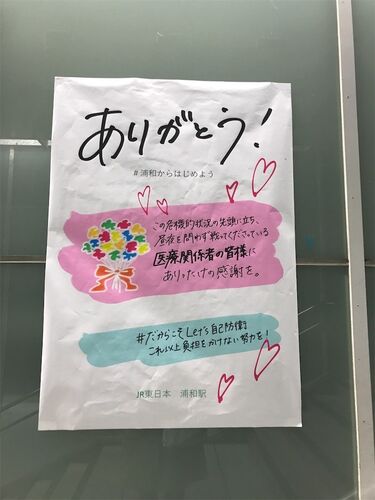 ありがとう！
#浦和からはじめよう
この危機的状況の先頭に立ち、
昼夜を問わず戦ってくださっている
医療関係者の皆様に
ありったけの感謝を。
#だからこそLet's自己防衛
これ以上負担をかけない努力を！
JR東日本　浦和駅